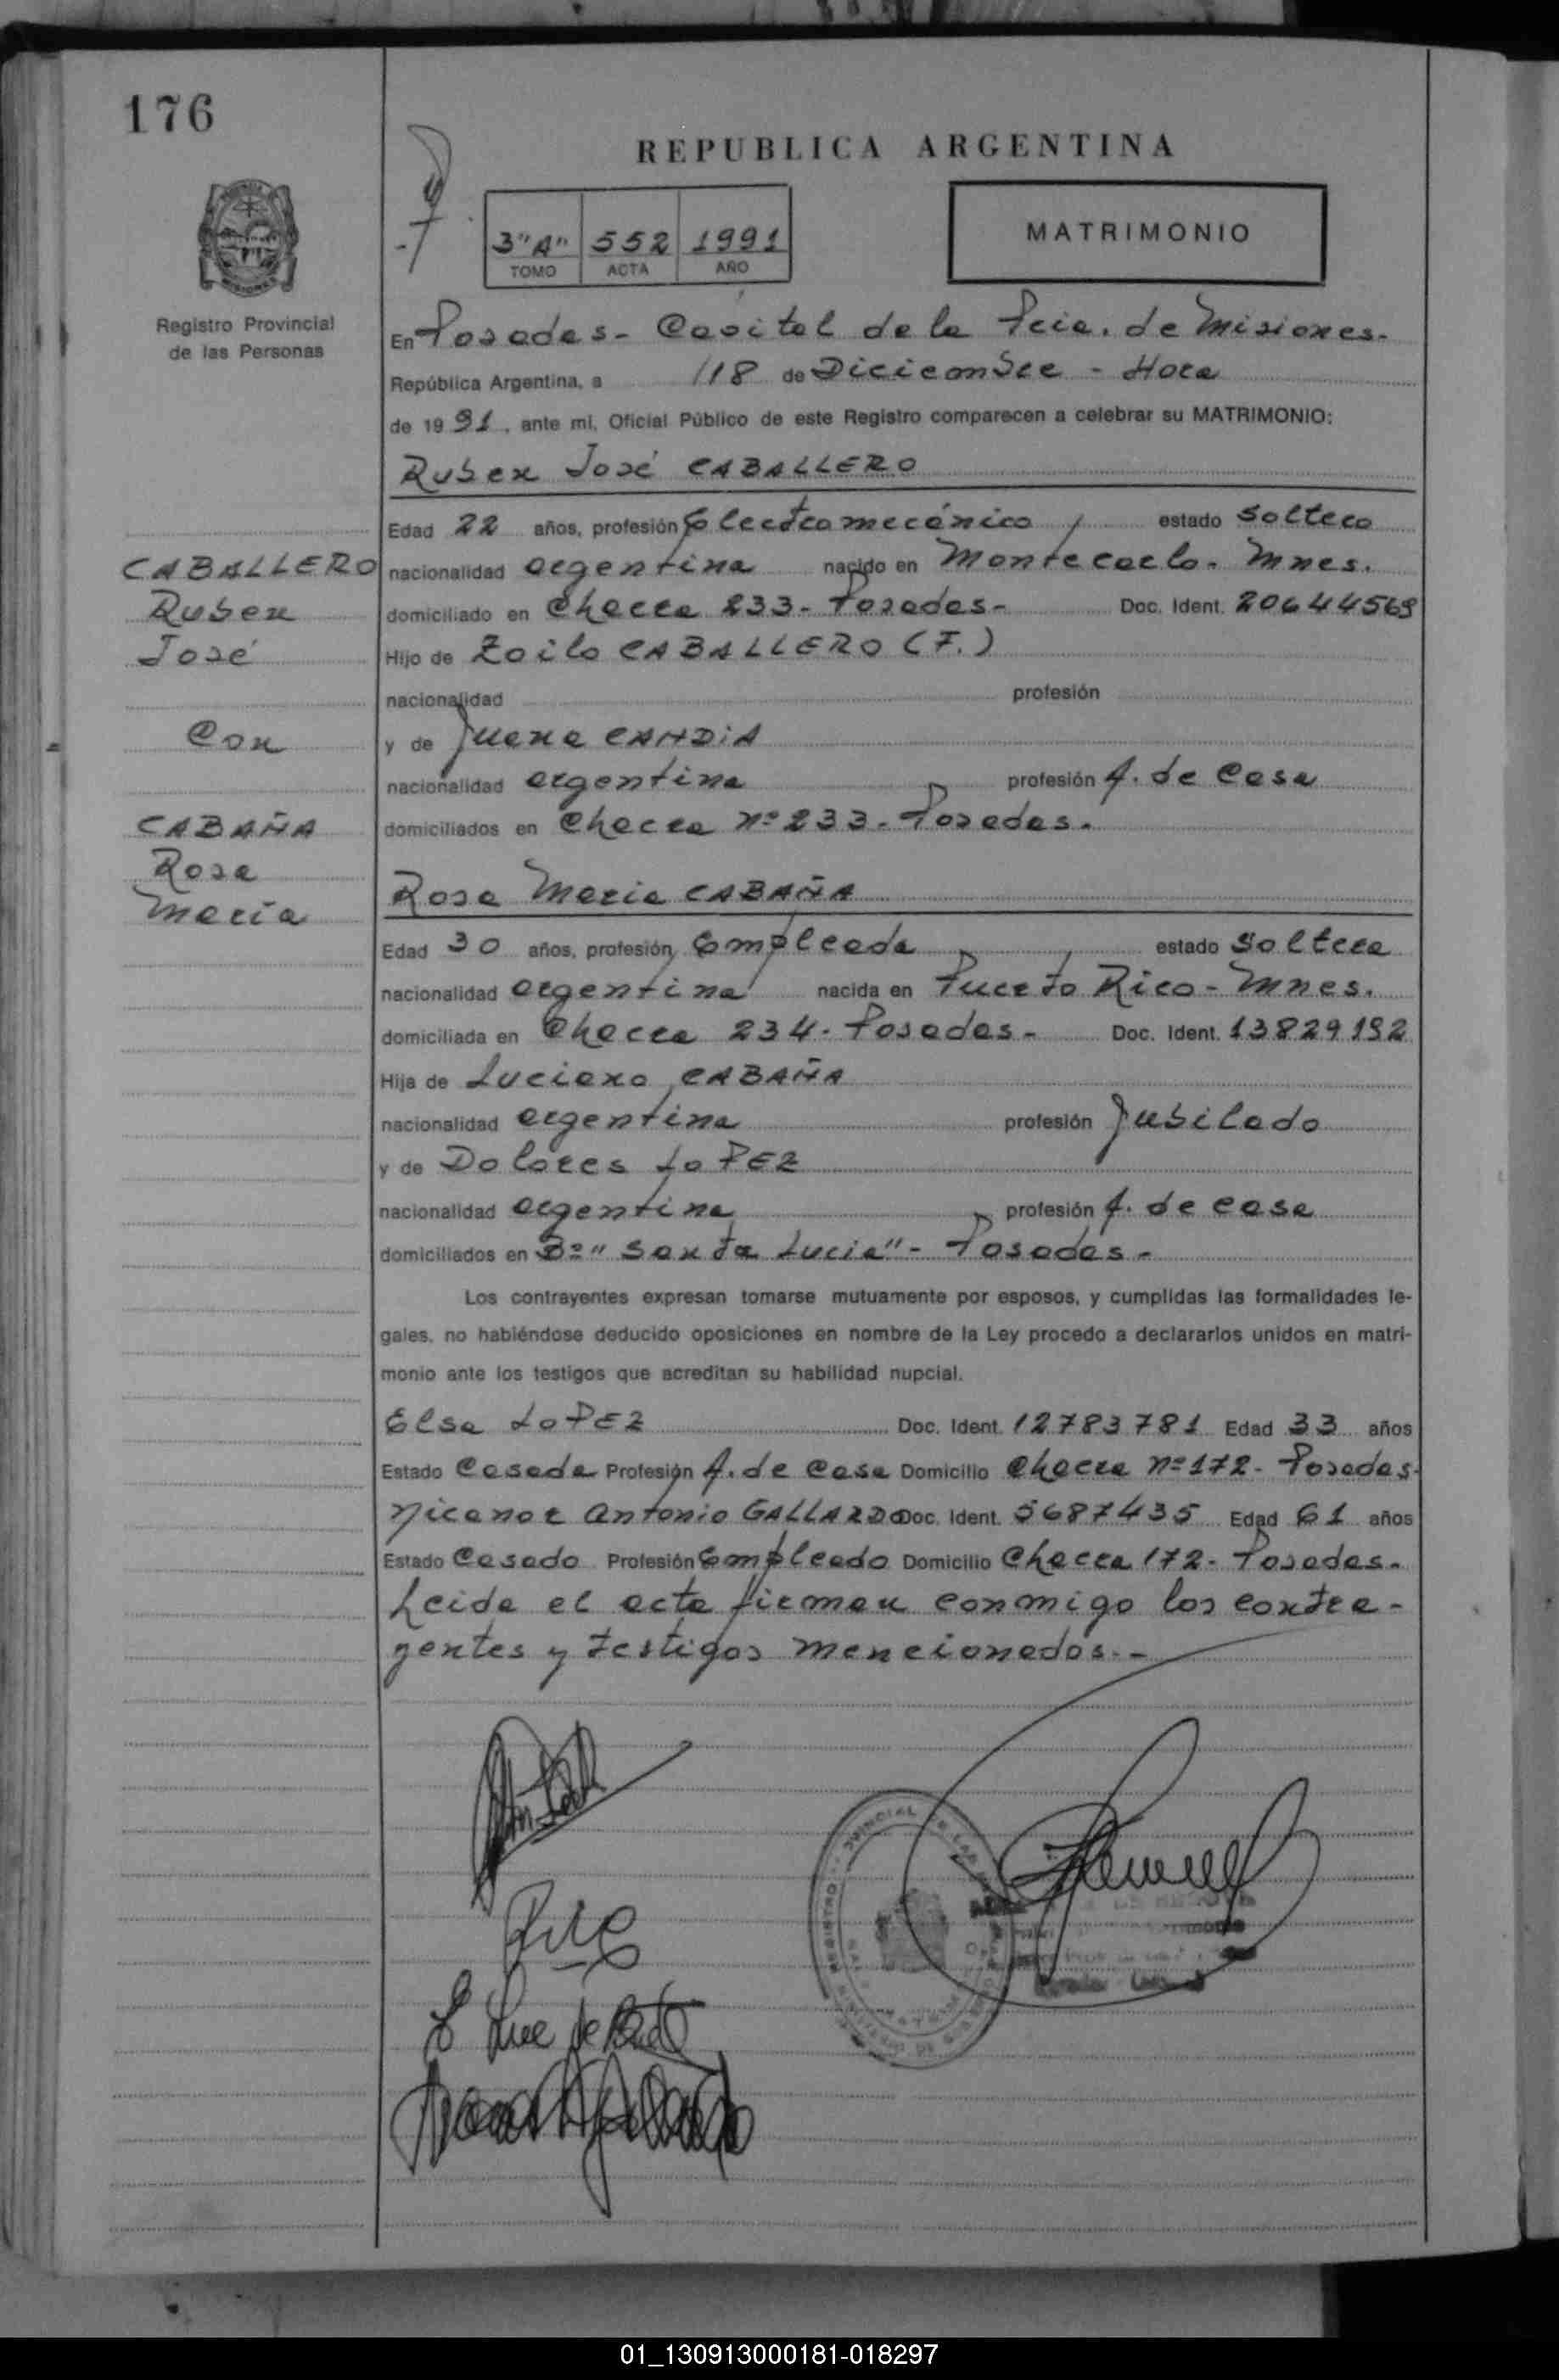 176
REPUBLICA ARGENTINA
3"A" 552 1991
TOMO ACTA AÑO
MATRIMONIO
Registro Provincial
de las Personas
En Posadas - Capital de la Pcia. de Misiones.
República Argentina, a 18 de Diciembre - Hora
de 1991, ante mi, Oficial Público de este Registro comparecen a celebrar su MATRIMONIO:
Ruben José CABALLERO
Edad 22 años, profesión Electromecánico estado soltero
nacionalidad argentina nacido en Montecarlo. Mnes.
domiciliado en Chacra 233 - Posadas - Doc. Ident. 20644569
Hijo de Zoilo CABALLERO (F.)
nacionalidad profesión
y de Juana CANDIA
nacionalidad argentina profesión A. de Casa
domiciliados en Chacra nº 233 - Posadas.
CABALLERO
Ruben
José
Con
CABAÑA
Rosa
María
Rosa Maria CABAÑA
Edad 30 años, profesión Empleada estado soltera
nacionalidad argentina nacida en Puerto Rico - Mnes.
domiciliada en Chacra 234 - Posadas - Doc. Ident. 13829192
Hija de Luciano CABAÑA
nacionalidad argentina profesión Jubilado
y de Dolores LOPEZ
nacionalidad argentina profesión A. de casa
domiciliados en Bº "Santa Lucia" - Posadas -
Los contrayentes expresan tomarse mutuamente por esposos, y cumplidas las formalidades le-
gales, no habiéndose deducido oposiciones en nombre de la Ley procedo a declararlos unidos en matri-
monio ante los testigos que acreditan su habilidad nupcial.
Elsa LOPEZ Doc. Ident. 12783781 Edad 33 años
Estado Casada Profesión A. de Casa Domicilio Chacra nº 172 - Posadas.
Nicanor Antonio GALLARDO Doc. Ident. 5687435 Edad 61 años
Estado Casado Profesión Empleado Domicilio Chacra 172 - Posadas.
Leida el acta firman conmigo los contra-
yentes y testigos mencionados.-
01_130913000181-018297